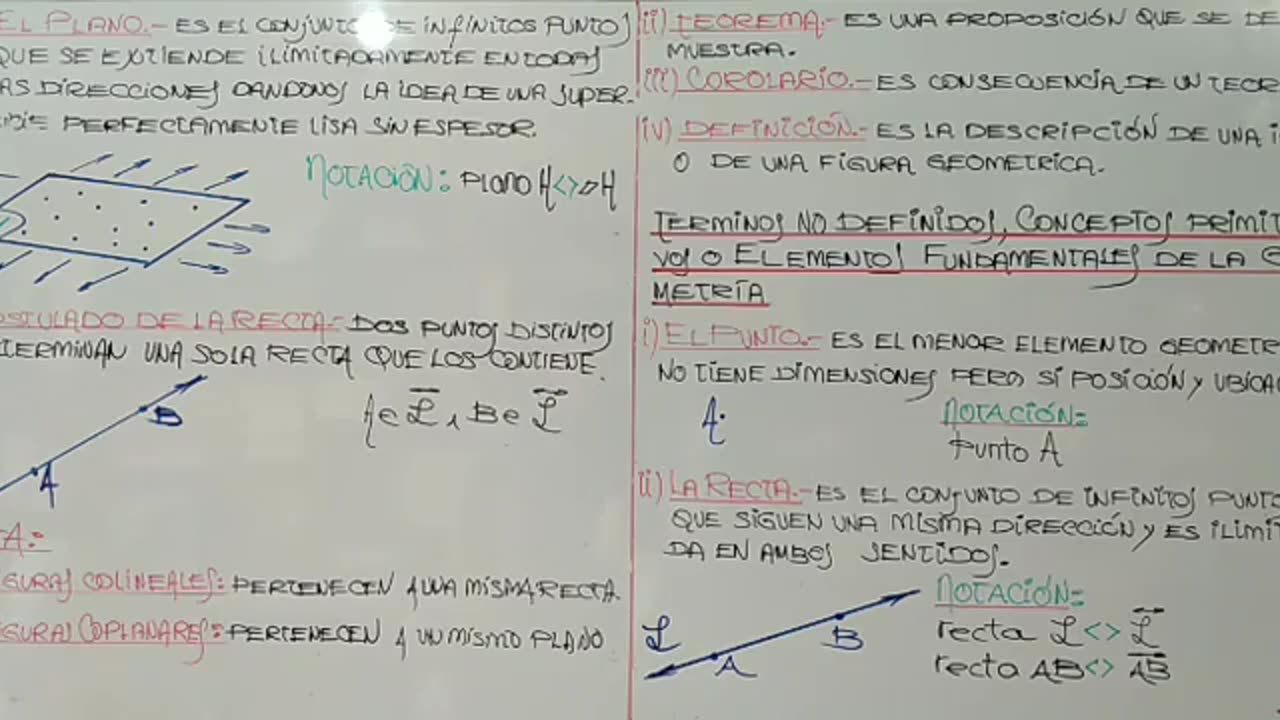 EL PLANO.- ES EL CONJUNTO DE INFINITOS PUNTOS
QUE SE EXTIENDE ILIMITADAMENTE EN TODAS
AS DIRECCIONES DANDONOS LA IDEA DE UNA SUPER-
PERFECTAMENTE LISA SIN ESPESOR.
NOTACIÓN: PLANO H <> ▱H
OSTULADO DE LA RECTA.- DOS PUNTOS DISTINTOS
TERMINAN UNA SOLA RECTA QUE LOS CONTIENE.
B
A
A ∈ L, B ∈ L
TA:
GURAS COLINEALES: PERTENECEN A UNA MISMA RECTA.
GURAS COPLANARES: PERTENECEN A UN MISMO PLANO
ii) TEOREMA.- ES UNA PROPOSICIÓN QUE SE DE
MUESTRA.
iii) COROLARIO.- ES CONSECUENCIA DE UN TEOR
iv) DEFINICIÓN.- ES LA DESCRIPCIÓN DE UNA I
O DE UNA FIGURA GEOMETRICA.
TERMINOS NO DEFINIDOS, CONCEPTOS PRIMITI
VOS O ELEMENTOS FUNDAMENTALES DE LA G
METRÍA
i) EL PUNTO.- ES EL MENOR ELEMENTO GEOMETR
NO TIENE DIMENSIONES PERO SÍ POSICIÓN Y UBICA
A.
NOTACIÓN=
Punto A
ii) LA RECTA.- ES EL CONJUNTO DE INFINITOS PUNTO
QUE SIGUEN UNA MISMA DIRECCIÓN Y ES ILIMIT
DA EN AMBOS SENTIDOS.
L
A
B
NOTACIÓN=
recta L <> L
recta AB <> AB